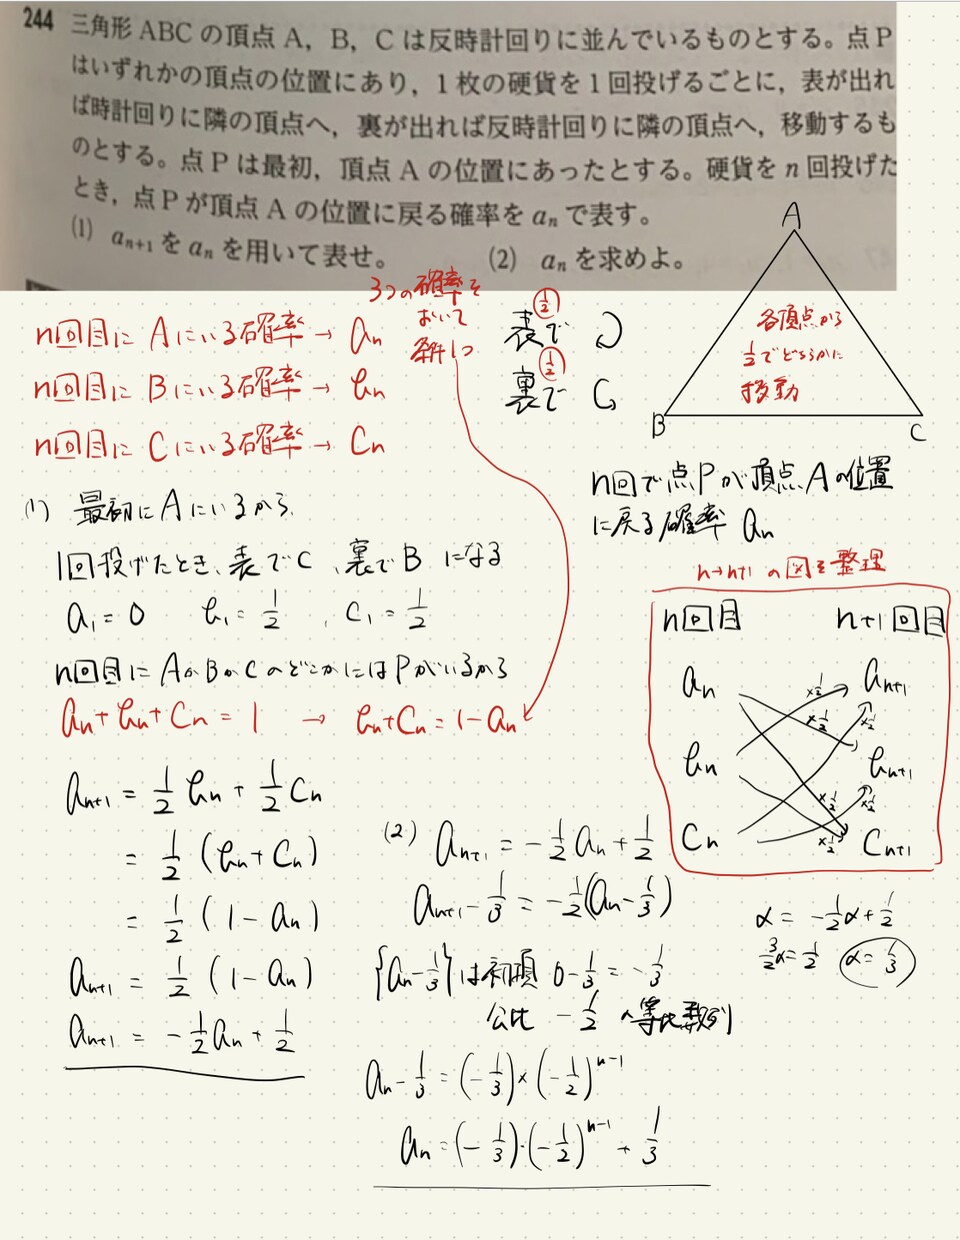 244 三角形 ABC の頂点 A，B，C は反時計回りに並んでいるものとする。点 P
はいずれかの頂点の位置にあり，1 枚の硬貨を 1 回投げるごとに，表が出れ
ば時計回りに隣の頂点へ，裏が出れば反時計回りに隣の頂点へ，移動するも
のとする。点 P は最初，頂点 A の位置にあったとする。硬貨を n 回投げた
とき，点 P が頂点 A の位置に戻る確率を aₙ で表す。
(1) aₙ₊₁ を aₙ を用いて表せ。 (2) aₙ を求めよ。
A
B
C
各頂点から
1/2でどちらかに
移動
n回目に Aにいる確率 → aₙ
n回目に Bにいる確率 → bₙ
n回目に Cにいる確率 → Cₙ
3つの確率を
おいて
条件1つ
1/2
表で
1/2
裏で
(1) 最初にAにいるから、
1回投げたとき、表でC、裏でB になる
a₁=0 b₁=1/2 , C₁=1/2
n回目にAかBかCのどこかにはPがいるから
aₙ+bₙ+Cₙ=1 → bₙ+Cₙ=1-aₙ
aₙ₊₁ = 1/2 bₙ + 1/2 Cₙ
= 1/2 (bₙ+Cₙ)
= 1/2 (1-aₙ)
aₙ₊₁ = 1/2 (1-aₙ)
aₙ₊₁ = -1/2 aₙ + 1/2
n回で点Pが頂点Aの位置
に戻る確率 aₙ
n→n+1 の図を整理
n回目 n+1回目
aₙ aₙ₊₁
bₙ bₙ₊₁
Cₙ Cₙ₊₁
×1/2
×1/2
×1/2
×1/2
×1/2
×1/2
(2) aₙ₊₁ = -1/2 aₙ + 1/2
aₙ₊₁ - 1/3 = -1/2 (aₙ - 1/3)
α = -1/2 α + 1/2
3/2 α = 1/2 α = 1/3
{aₙ - 1/3} は初項 0 - 1/3 = -1/3
公比 -1/2 の等比数列
aₙ - 1/3 = (-1/3) × (-1/2)ⁿ⁻¹
aₙ = (-1/3)・(-1/2)ⁿ⁻¹ + 1/3